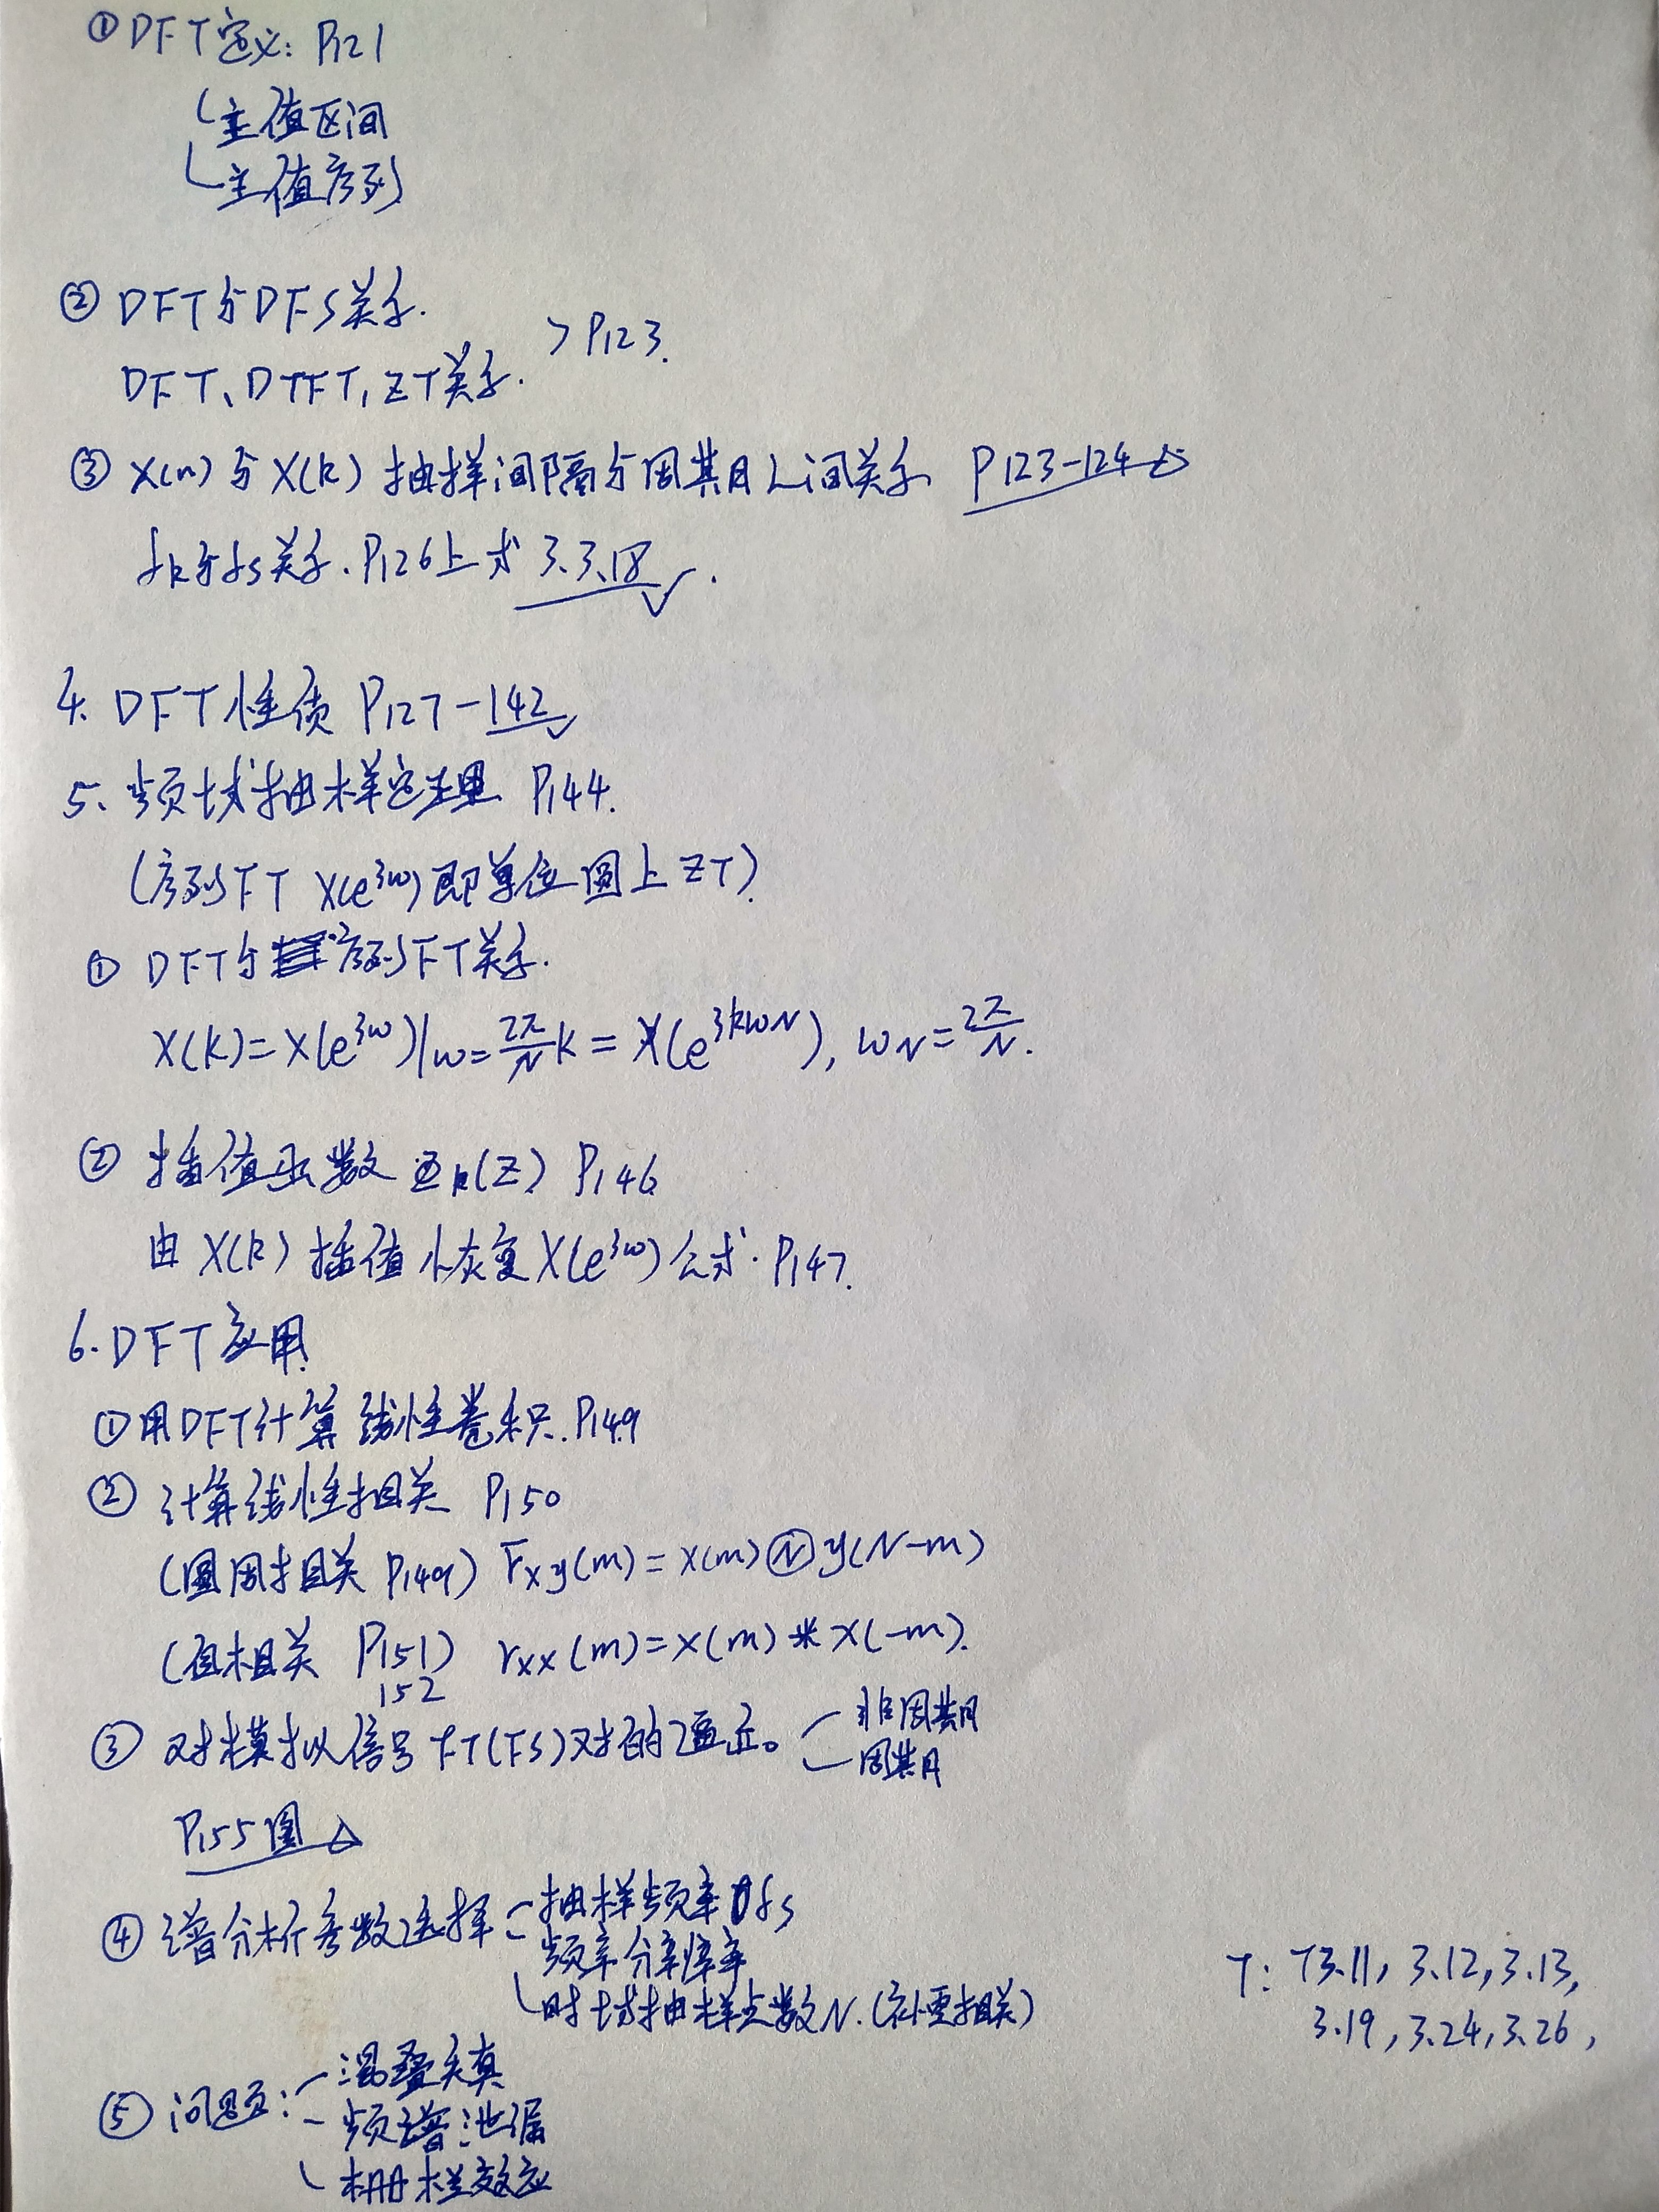 ①DFT定义: P121
主值区间
主值序列
②DFT与DFS关系.
>P123.
DFT、DTFT,ZT关系.
③X(n)与X(k)抽样间隔与周期之间关系 P123-124
fk与fs关系.P126上式3.3.18√.
4. DFT性质 P127-142√
5、频域抽样定理 P144.
(序列FT X(e^jω)即单位圆上ZT)
① DFT与序列FT关系.
X(k)=X(e^jω)|ω=2π/N k=X(e^jkωN), ωN=2π/N.
② 插值函数 Φk(Z) P146
由X(k)插值恢复X(e^jω)公式.P147.
6.DFT应用
①用DFT计算线性卷积.P149
② 计算线性相关 P150
(圆周相关 P149) r̄xy(m)=x(m)Ⓝy(N-m)
(自相关 P151) rxx(m)=x(m)*x(-m).
152
③ 对模拟信号FT(FS)对的逼近。
非周期
周期
P155图△
④谱分析参数选择
抽样频率fs
频率分辨率
时域抽样点数N.(补零相关)
T: T3.11, 3.12, 3.13,
3.19, 3.24, 3.26,
⑤问题:
混叠失真
频谱泄漏
栅栏效应